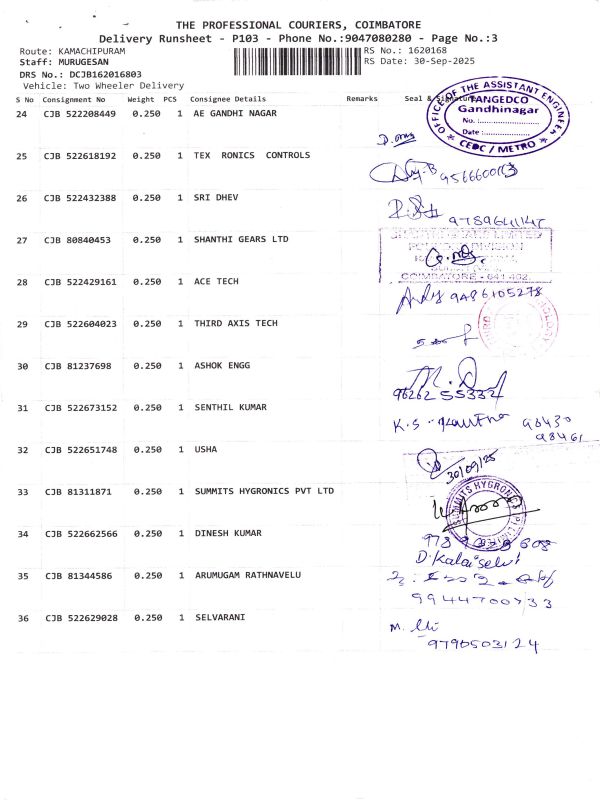 THE PROFESSIONAL COURIERS, COIMBATORE
Delivery Runsheet - P103 - Phone No.:9047080280 - Page No.:3
Route: KAMACHIPURAM
RS No.: 1620168
Staff: MURUGESAN
RS Date: 30-Sep-2025
DRS No.: DCJB162016803
Vehicle: Two Wheeler Delivery
S No Consignment No Weight PCS Consignee Details Remarks Seal & Signature
OF THE ASSISTANT ENGINEER
TANGEDCO
Gandhinagar
No. :
Date :
CEDC / METRO
24 CJB 522208449 0.250 1 AE GANDHI NAGAR
25 CJB 522618192 0.250 1 TEX RONICS CONTROLS
26 CJB 522432388 0.250 1 SRI DHEV
27 CJB 80840453 0.250 1 SHANTHI GEARS LTD
SHANTHI GEARS LIMITED
COIMBATORE - 641 402.
28 CJB 522429161 0.250 1 ACE TECH
9486105278
29 CJB 522604023 0.250 1 THIRD AXIS TECH
30 CJB 81237698 0.250 1 ASHOK ENGG
96262 55332
31 CJB 522673152 0.250 1 SENTHIL KUMAR
K.S.
98430
98461
32 CJB 522651748 0.250 1 USHA
30/09/25
33 CJB 81311871 0.250 1 SUMMITS HYGRONICS PVT LTD
SUMMITS HYGRONICS
34 CJB 522662566 0.250 1 DINESH KUMAR
D. Kalaiselvi
35 CJB 81344586 0.250 1 ARUMUGAM RATHNAVELU
9944700733
36 CJB 522629028 0.250 1 SELVARANI
9790503124